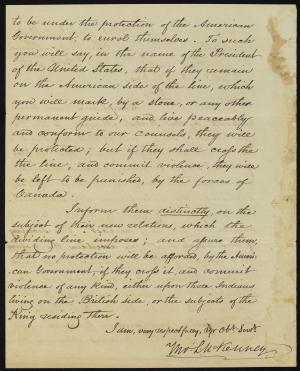 to be under the protection of the American
Government, to enrol themselves. To such
you will say, in the name of the President
of the United States, that if they remain
on the American side of the line, which
you will mark, by a stone, or any other
permanent guide, and live peaceably
and conform to our counsels, they will
be protected; but if they shall cross the
the line, and commit violence, they will
be left to be punished, by the forces of
Canada.
Inform them distinctly, on the
subject of their new relations, which the
dividing line imposes; and assure them,
that no protection will be afforded, by the Ameri-
can Government, if they cross it, and commit
violence of any kind, either upon those Indians
living on the British side, or the subjects of the
King residing there.
I am, very respectfully, Yr Obt. Servt
Tho: L. McKenney